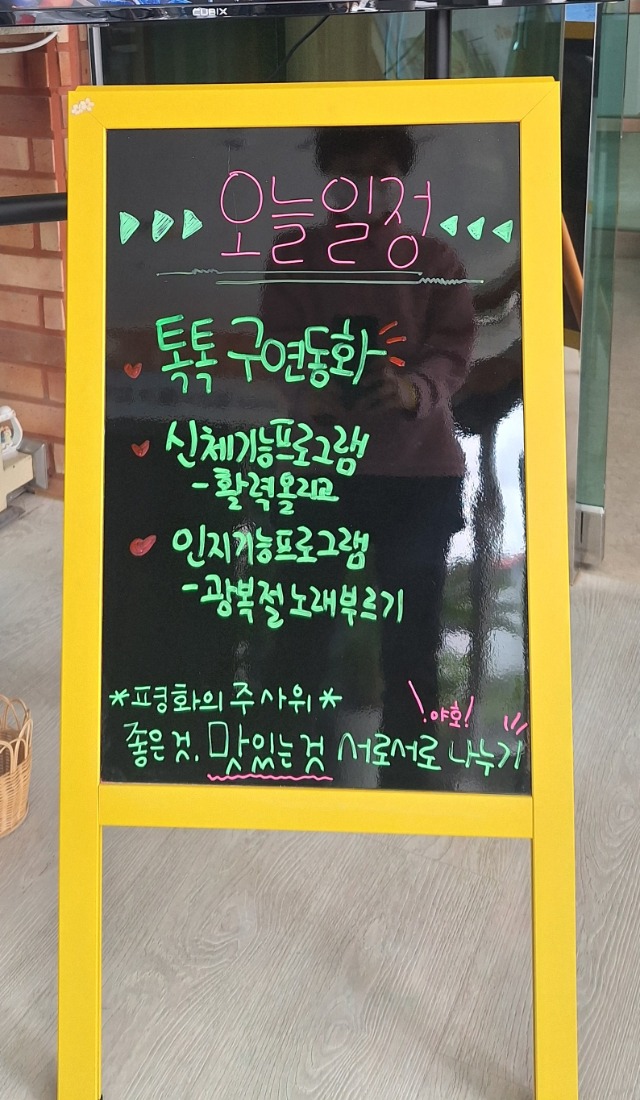 CUBIX
오늘일정
톡톡 구연동화
신체기능프로그램
- 활력올리고
인지기능프로그램
- 광복절 노래부르기
*평화의 주사위*
야호!
좋은것, 맛있는것 서로서로 나누기